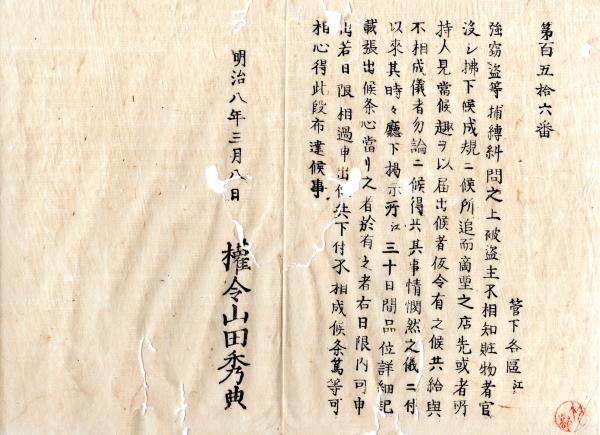 第百五拾六番
管下各區江
強窃盗等捕縛糾問之上被盗主不相知賍物者官
没シ拂下候成規ニ候所追而商売之店先或者所
持人見當候趣ヲ以届出候者仮令有之候共給與
不相成儀者勿論ニ候得共其事情憫然之儀ニ付
以來其時々廳下掲示所江三十日間品位詳細記
載張出候条心當リ之者於有之者右日限内可申
出若日限相過申出候共下付不相成候条篤等可
相心得此段布達候事
明治八年三月八日
權令山田秀典